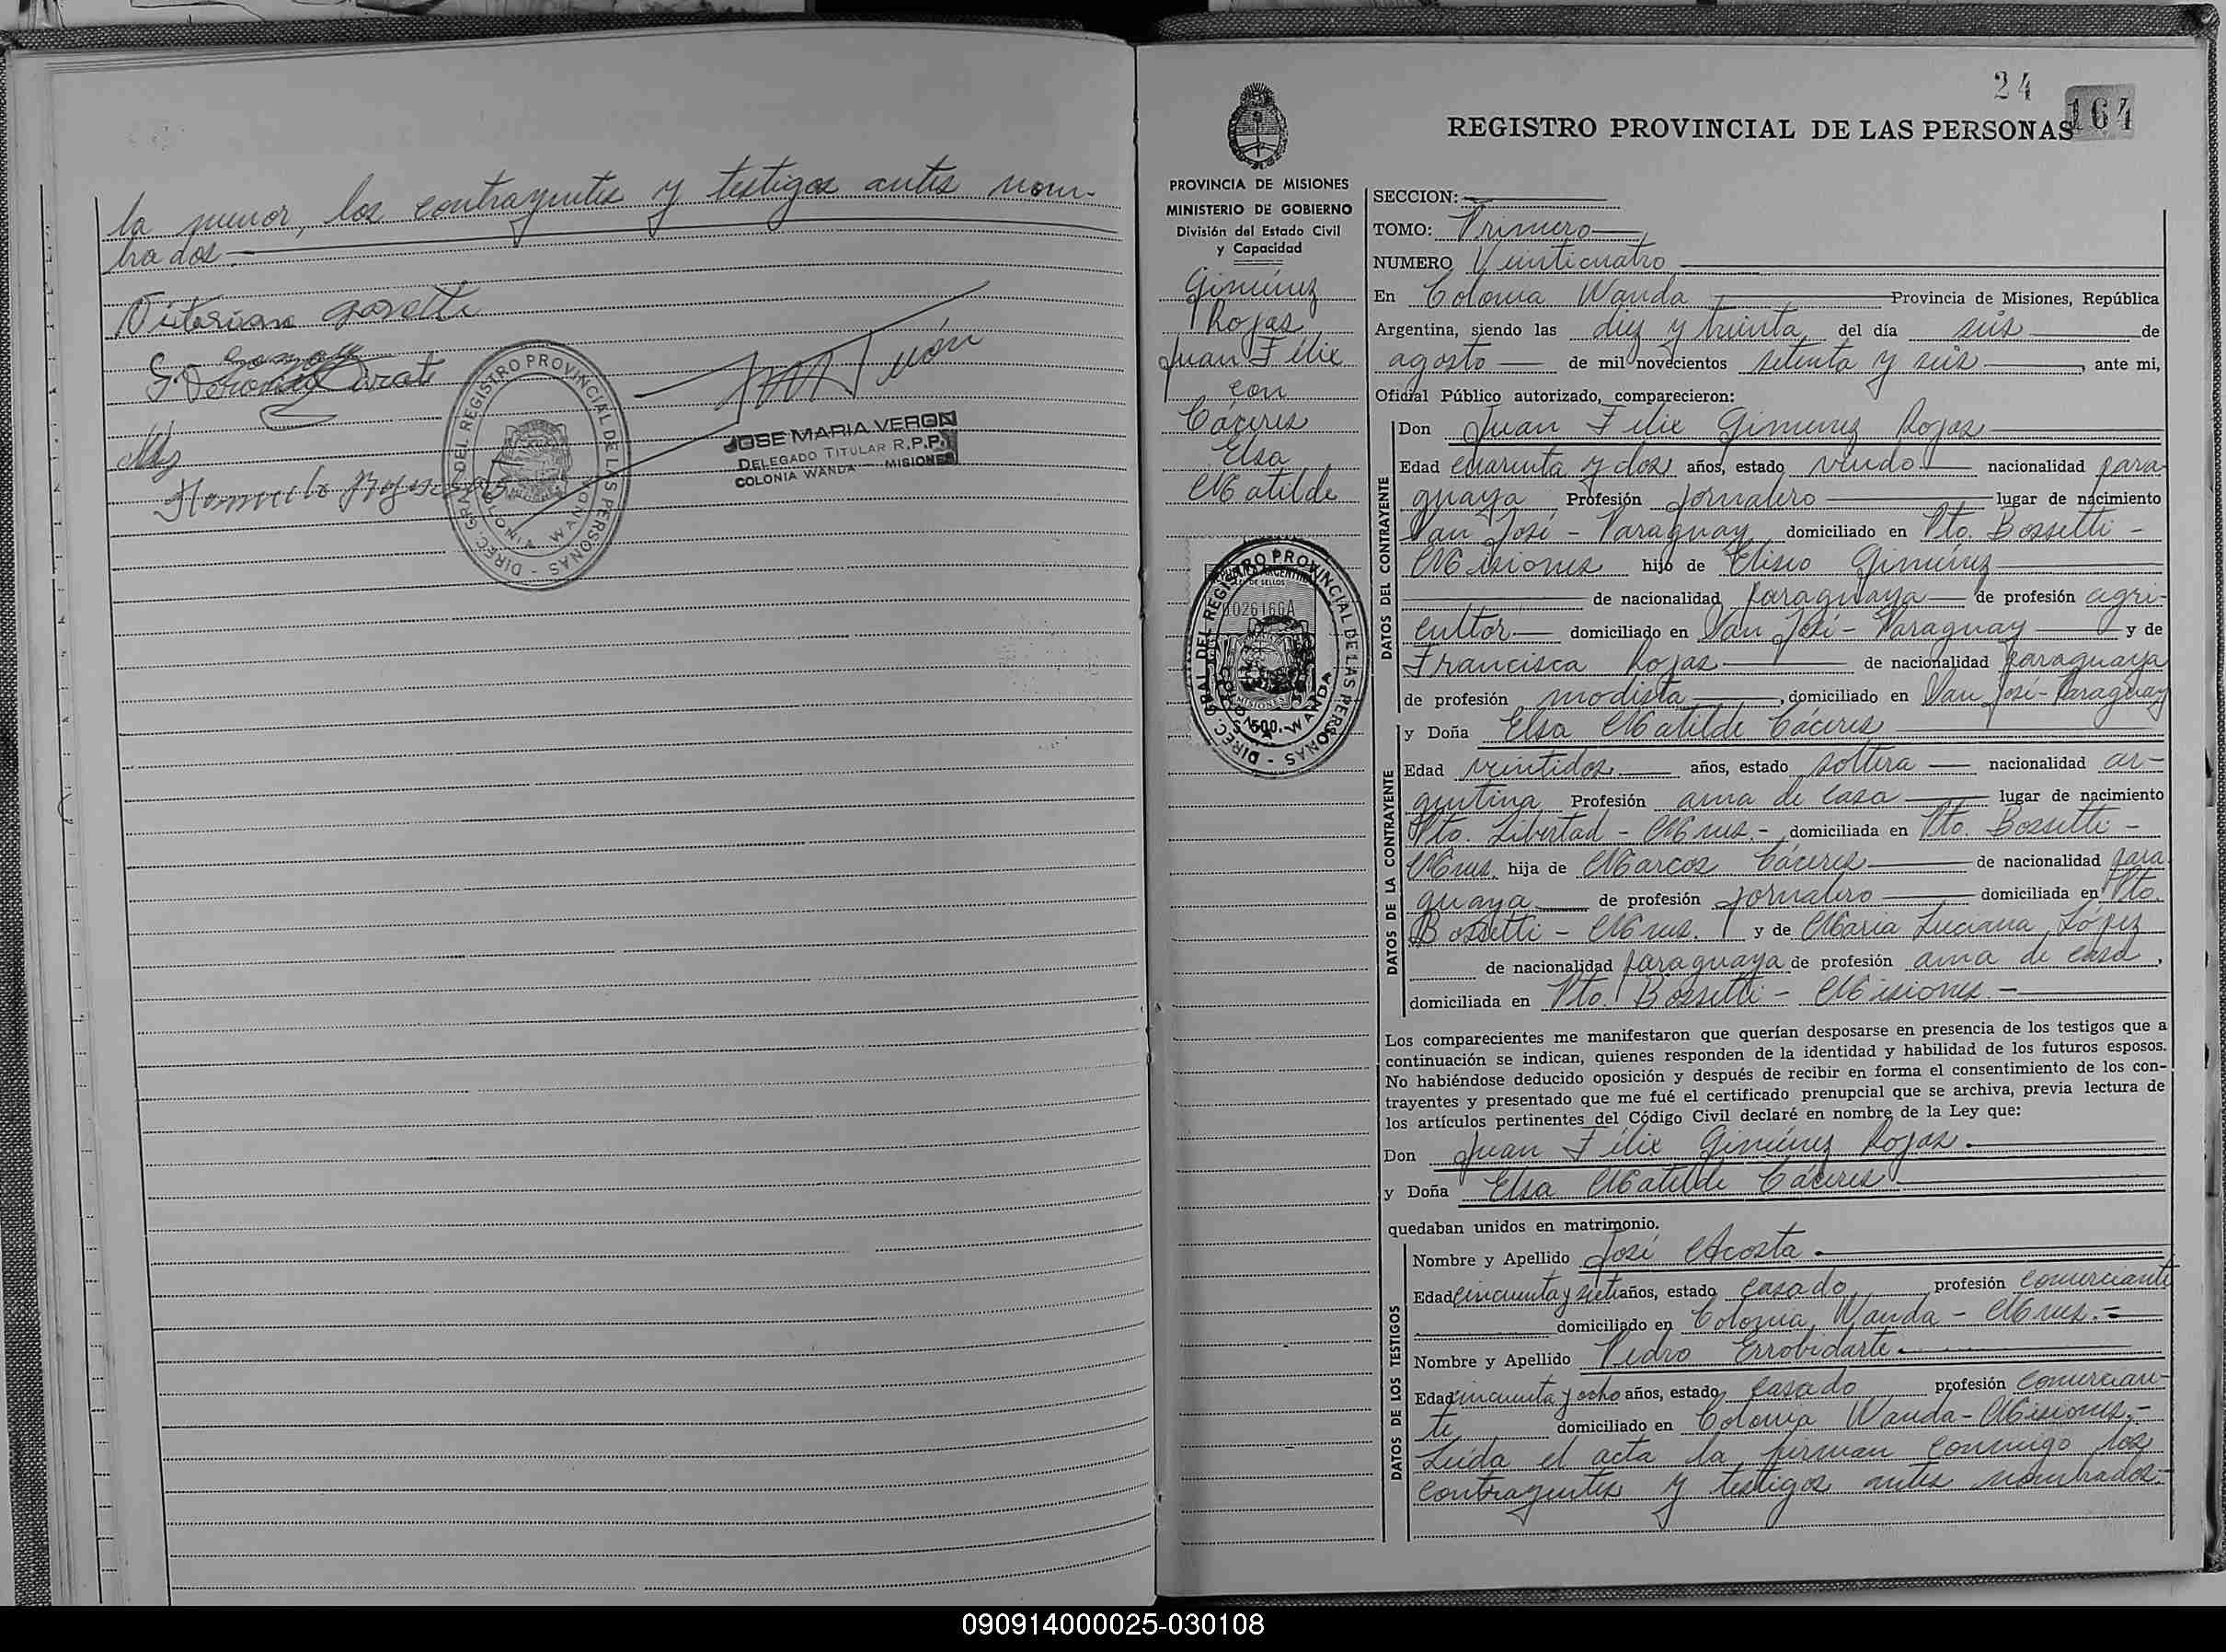 la menor, los contrayentes y testigos antes nom-
brados.
JOSE MARIA VERON
DELEGADO TITULAR R.P.P.
COLONIA WANDA - MISIONES
DIREC. GRAL. DEL REGISTRO PROVINCIAL DE LAS PERSONAS -
COLONIA WANDA
24
164
REGISTRO PROVINCIAL DE LAS PERSONAS
PROVINCIA DE MISIONES
MINISTERIO DE GOBIERNO
División del Estado Civil
y Capacidad
Giménez
Rojas
Juan Félix
con
Cáceres
Elsa
Matilde
DIREC. GRAL DEL REGISTRO PROVINCIAL DE LAS PERSONAS -
0026166A
MISIONES
500.
WANDA
SECCION:
TOMO: Primero
NUMERO Veinticuatro
En Colonia Wanda Provincia de Misiones, República
Argentina, siendo las diez y treinta del día seis de
agosto de mil novecientos setenta y seis, ante mi,
Oficial Público autorizado, comparecieron:
DATOS DEL CONTRAYENTE
Don Juan Félix Gimenez Rojas
Edad cuarenta y dos años, estado viudo nacionalidad para
guaya Profesión jornalero lugar de nacimiento
San José - Paraguay domiciliado en Pto. Bossetti -
Misiones hijo de Eliseo Giménez
de nacionalidad paraguaya de profesión agri-
cultor domiciliado en San José - Paraguay y de
Francisca Rojas de nacionalidad paraguaya
de profesión modista, domiciliado en San José - Paraguay
DATOS DE LA CONTRAYENTE
y Doña Elsa Matilde Cáceres
Edad veintidos años, estado soltera nacionalidad ar-
gentina Profesión ama de casa lugar de nacimiento
Pto. Libertad - Mnes. -, domiciliada en Pto. Bossetti -
Mnes. hija de Marcos Cáceres de nacionalidad para
guaya de profesión jornalero domiciliada en Pto.
Bossetti - Mnes. y de Maria Luciana López
de nacionalidad paraguaya de profesión ama de casa,
domiciliada en Pto. Bossetti - Misiones. -
Los comparecientes me manifestaron que querían desposarse en presencia de los testigos que a
continuación se indican, quienes responden de la identidad y habilidad de los futuros esposos.
No habiéndose deducido oposición y después de recibir en forma el consentimiento de los con-
trayentes y presentado que me fué el certificado prenupcial que se archiva, previa lectura de
los artículos pertinentes del Código Civil declaré en nombre de la Ley que:
Don Juan Félix Giménez Rojas.
y Doña Elsa Matilde Cáceres
quedaban unidos en matrimonio.
DATOS DE LOS TESTIGOS
Nombre y Apellido José Acosta.
Edad cincuenta y siete años, estado casado profesión comerciante
domiciliado en Colonia Wanda - Mnes. -
Nombre y Apellido Pedro Errobidarte.
Edad cincuenta y ocho años, estado casado profesión comercian-
te domiciliado en Colonia Wanda - Misiones. -
Leida el acta la firman conmigo los
contrayentes y testigos antes nombrados. -
090914000025-030108